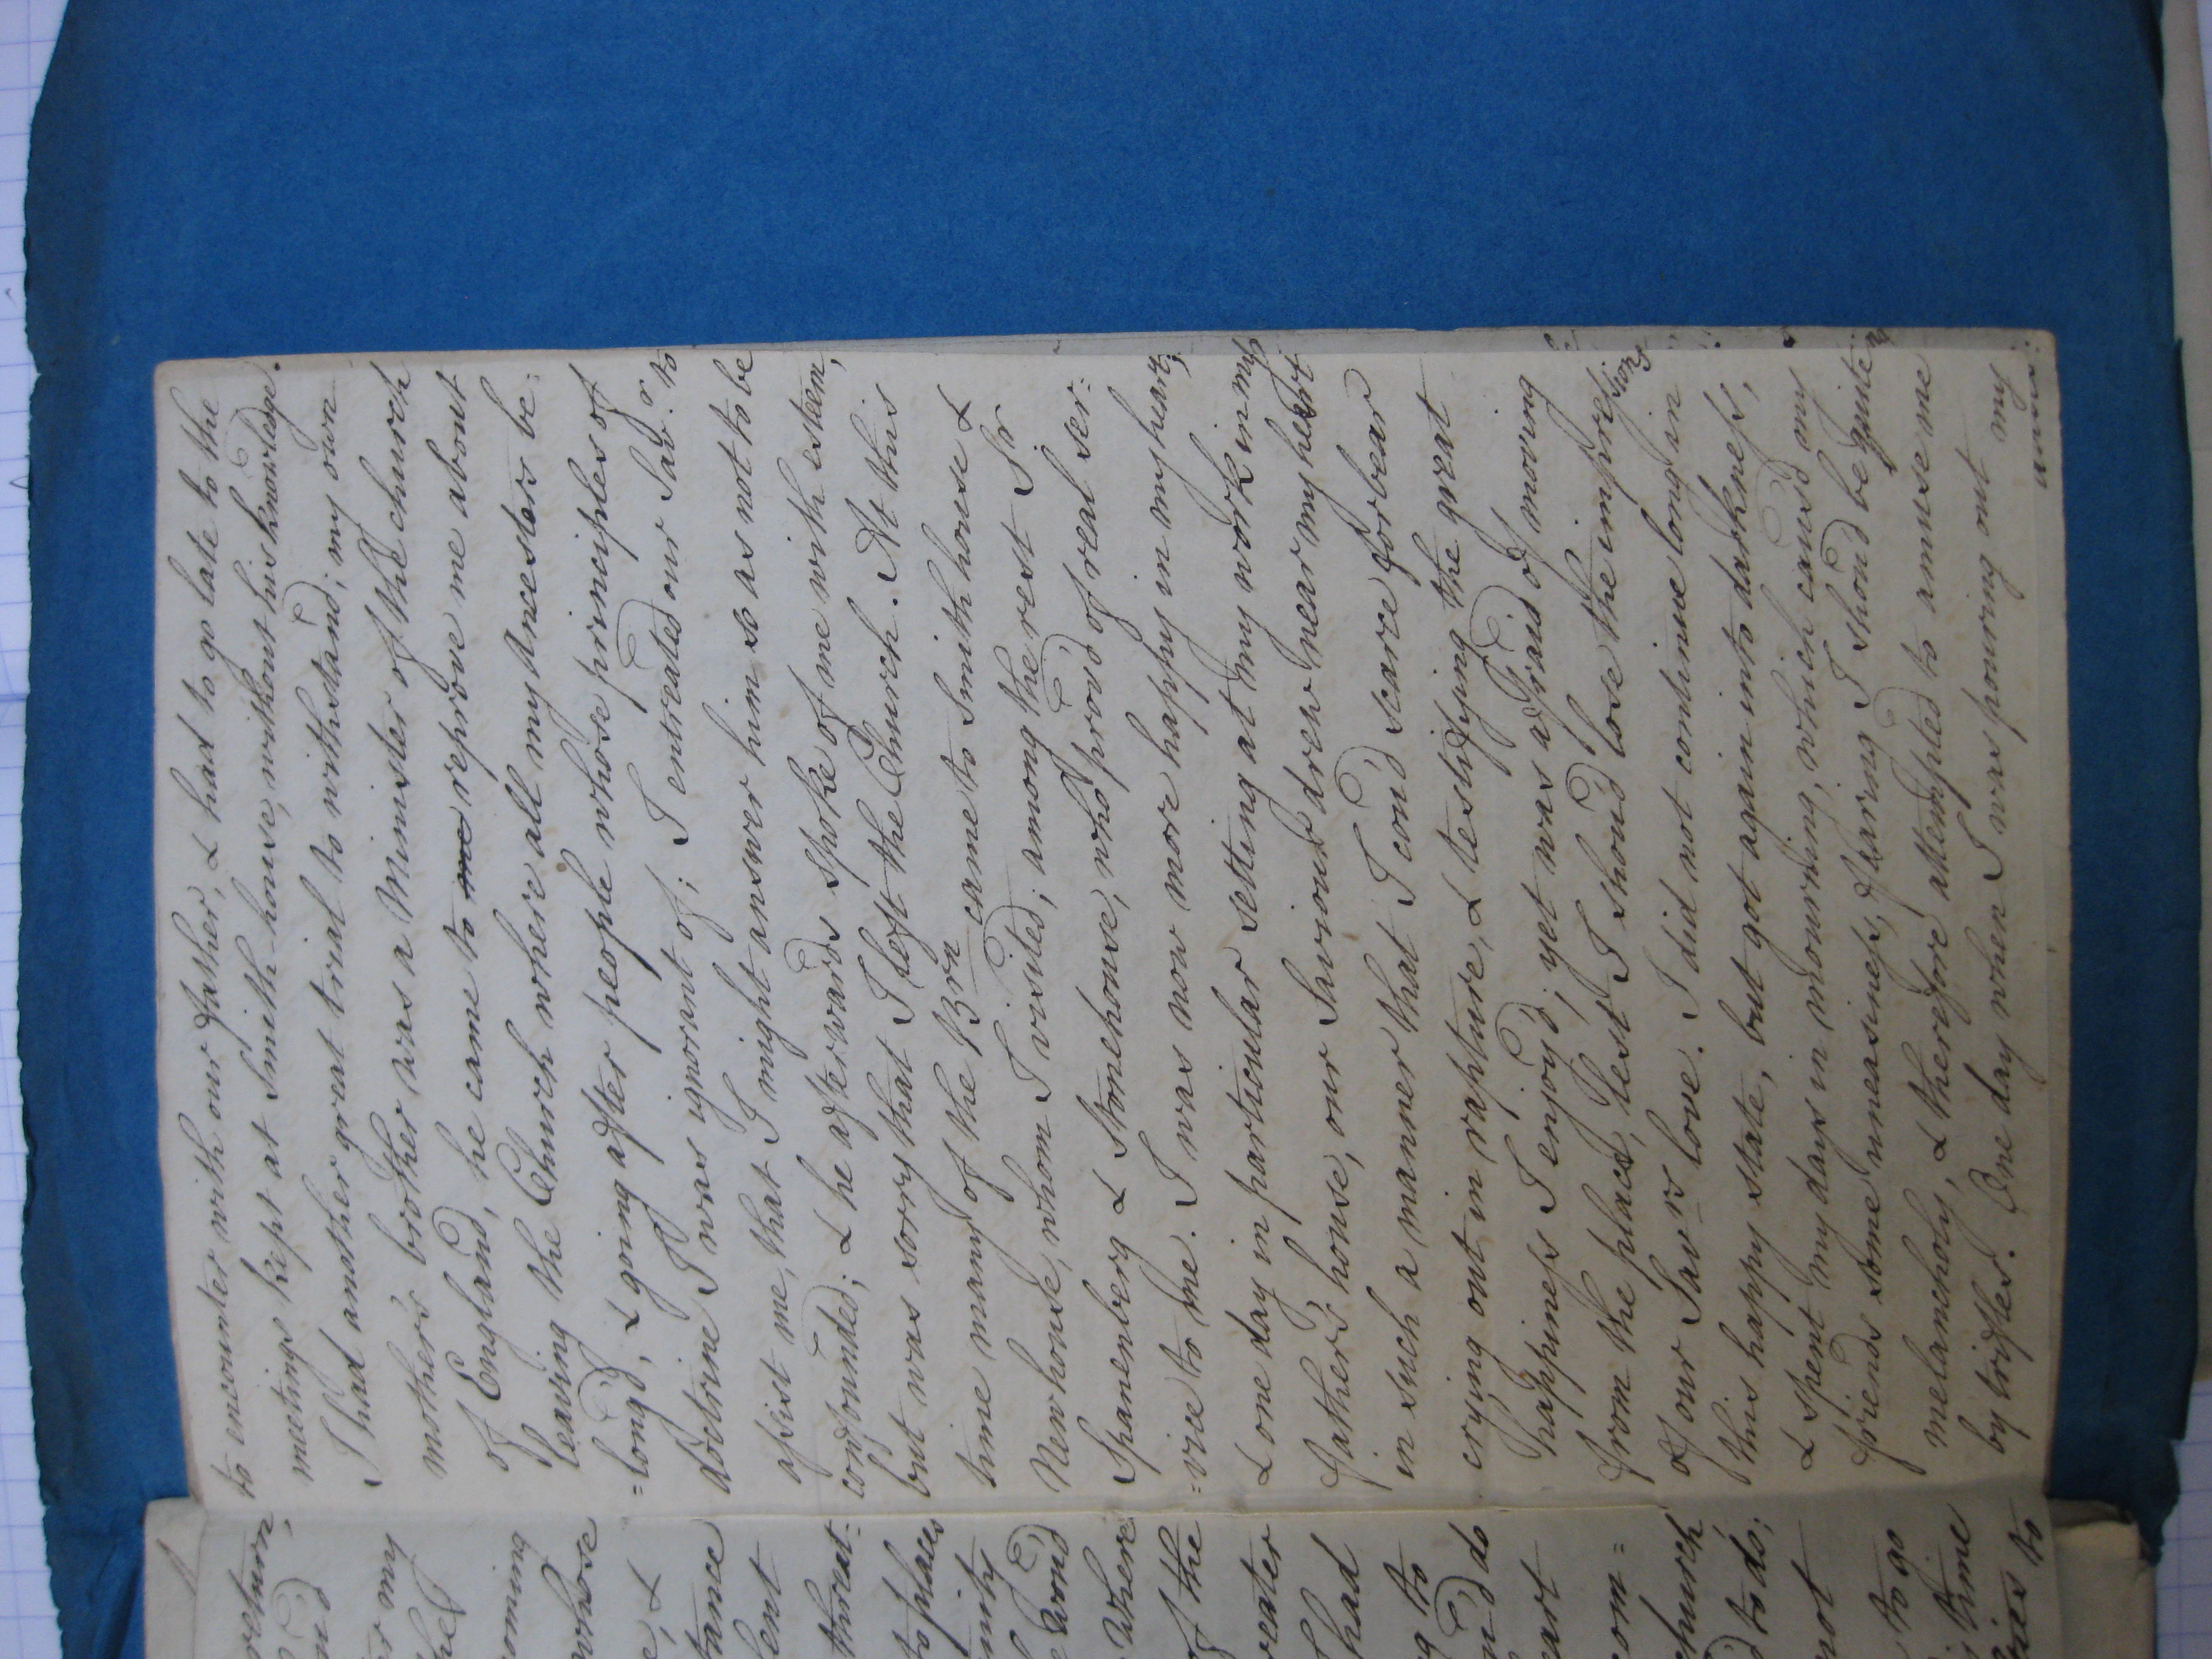 to encounter with our father, & had to go late to the
meetings kept at Smith-house, without his knowledge.
I had another great trial to withstand; my own
mother's brother was a Minister of the church
of England, he came to me reprove me about
leaving the Church where all my Ancestors be:
=long'd, & going after people whose principles of
doctrine I was ignorant of; I entreated our Savr. to
assist me, that I might answer him so as not to be
confounded; & he afterwards spoke of me with esteem,
but was sorry that I left the Church. At this
time many of the Brn came to Smith house &
New house, whom I visited; among the rest Sr
Spanenberg & Stonehouse, who prov'd of real ser:
=vice to me. I was now more happy in my heart;
& one day in particular setting at my work in my
father's house, our Saviour drew near my heart
in such a manner that I cou'd scarce forbear
crying out in rapture, & testifying the great
happiness I enjoy'd; yet was afraid of moving
from the place, lest I shou'd lose the impressions
of our Savrs love. I did not continue long in
this happy state, but got again into darkness,
& spent my days in mourning, which caus'd my
friends some uneasiness, fearing I shou'd be quite
melancholy, & therefore attempted to amuse me
by trifles. One day when I was pouring out my
return,
my
coming
whose
&
threat:
to places
wou'd
where
of the
had
to
do
church
to do;
not
to go
time
to